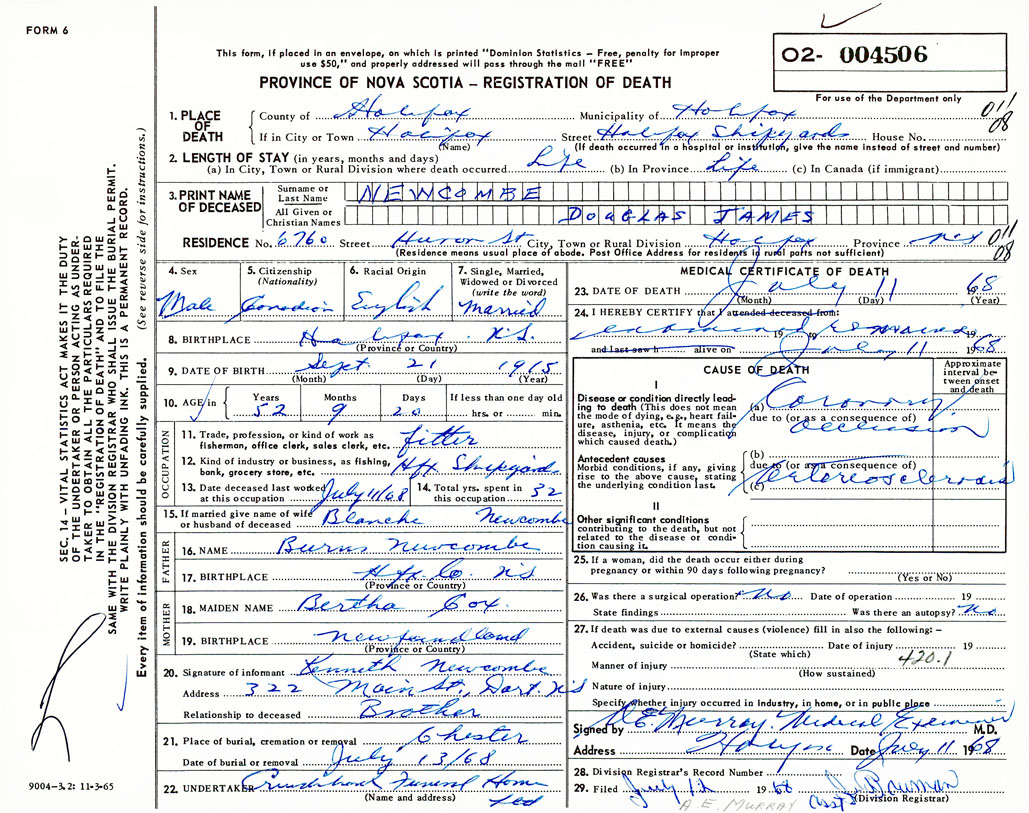 FORM 6
This form, if placed in an envelope, on which is printed "Dominion Statistics – Free, penalty for improper
use $50," and properly addressed will pass through the mail "FREE"
PROVINCE OF NOVA SCOTIA – REGISTRATION OF DEATH
02- 004506
For use of the Department only
011
08
1. PLACE OF DEATH
County of Halifax Municipality of Halifax
If in City or Town Halifax Street Halifax Shipyards House No.
(Name) (If death occurred in a hospital or institution, give the name instead of street and number)
2. LENGTH OF STAY (in years, months and days)
(a) In City, Town or Rural Division where death occurred Life (b) In Province Life (c) In Canada (if immigrant)
3. PRINT NAME OF DECEASED
Surname or Last Name NEWCOMBE
All Given or Christian Names DOUGLAS JAMES
RESIDENCE No. 6760 Street Huron St City, Town or Rural Division Halifax Province N.S 011
08
(Residence means usual place of abode. Post Office Address for residents in rural parts not sufficient)
4. Sex Male
5. Citizenship (Nationality) Canadian
6. Racial Origin English
7. Single, Married, Widowed or Divorced (write the word) Married
8. BIRTHPLACE Halifax N.S.
(Province or Country)
9. DATE OF BIRTH Sept. 21 1915
(Month) (Day) (Year)
10. AGE in Years 52 Months 9 Days 20 If less than one day old hrs. or min.
OCCUPATION
11. Trade, profession, or kind of work as fisherman, office clerk, sales clerk, etc. fitter
12. Kind of industry or business, as fishing, bank, grocery store, etc. Hfx Shipyard
13. Date deceased last worked at this occupation July 11/68 14. Total yrs. spent in this occupation 32
15. If married give name of wife or husband of deceased Blanche Newcombe
FATHER
16. NAME Burns Newcombe
17. BIRTHPLACE Hfx Co. N.S
(Province or Country)
MOTHER
18. MAIDEN NAME Bertha Cox.
19. BIRTHPLACE Newfoundland
(Province or Country)
20. Signature of informant Kenneth Newcombe
Address 322 Main St., Dart. N.S
Relationship to deceased Brother
21. Place of burial, cremation or removal Chester
Date of burial or removal July 13/68
22. UNDERTAKER Funeral Home Ltd
(Name and address)
MEDICAL CERTIFICATE OF DEATH
23. DATE OF DEATH July 11 68
(Month) (Day) (Year)
24. I HEREBY CERTIFY that I attended deceased from:
examined remains 19 to 19
and last saw h alive on July 11 1968
CAUSE OF DEATH
Approximate interval between onset and death
I
Disease or condition directly leading to death (This does not mean the mode of dying, e.g., heart failure, asthenia, etc. It means the disease, injury, or complication which caused death.)
(a) Coronary
due to (or as a consequence of)
occlusion
Antecedent causes
Morbid conditions, if any, giving rise to the above cause, stating the underlying condition last.
(b)
due to (or as a consequence of)
(c) arteriosclerosis
II
Other significant conditions contributing to the death, but not related to the disease or condition causing it.
25. If a woman, did the death occur either during
pregnancy or within 90 days following pregnancy?
(Yes or No)
26. Was there a surgical operation? No Date of operation 19
State findings Was there an autopsy? No
27. If death was due to external causes (violence) fill in also the following: –
Accident, suicide or homicide? Date of injury 19
(State which) 420.1
Manner of injury
(How sustained)
Nature of injury
Specify whether injury occurred in Industry, in home, or in public place
Signed by A.E. Murray. Medical Examiner M.D.
Address Halifax Date July 11 1968
28. Division Registrar's Record Number
29. Filed July 12 1968 Asst
(Division Registrar)
A. E. MURRAY
SEC. 14 – VITAL STATISTICS ACT MAKES IT THE DUTY
OF THE UNDERTAKER OR PERSON ACTING AS UNDER-
TAKER TO OBTAIN ALL THE PARTICULARS REQUIRED
IN THE "REGISTRATION OF DEATH" AND TO FILE THE
SAME WITH THE DIVISION REGISTRAR WHO SHALL ISSUE THE BURIAL PERMIT.
WRITE PLAINLY WITH UNFADING INK. THIS IS A PERMANENT RECORD.
Every item of information should be carefully supplied. (See reverse side for instructions.)
9004-3.2: 11-3-65